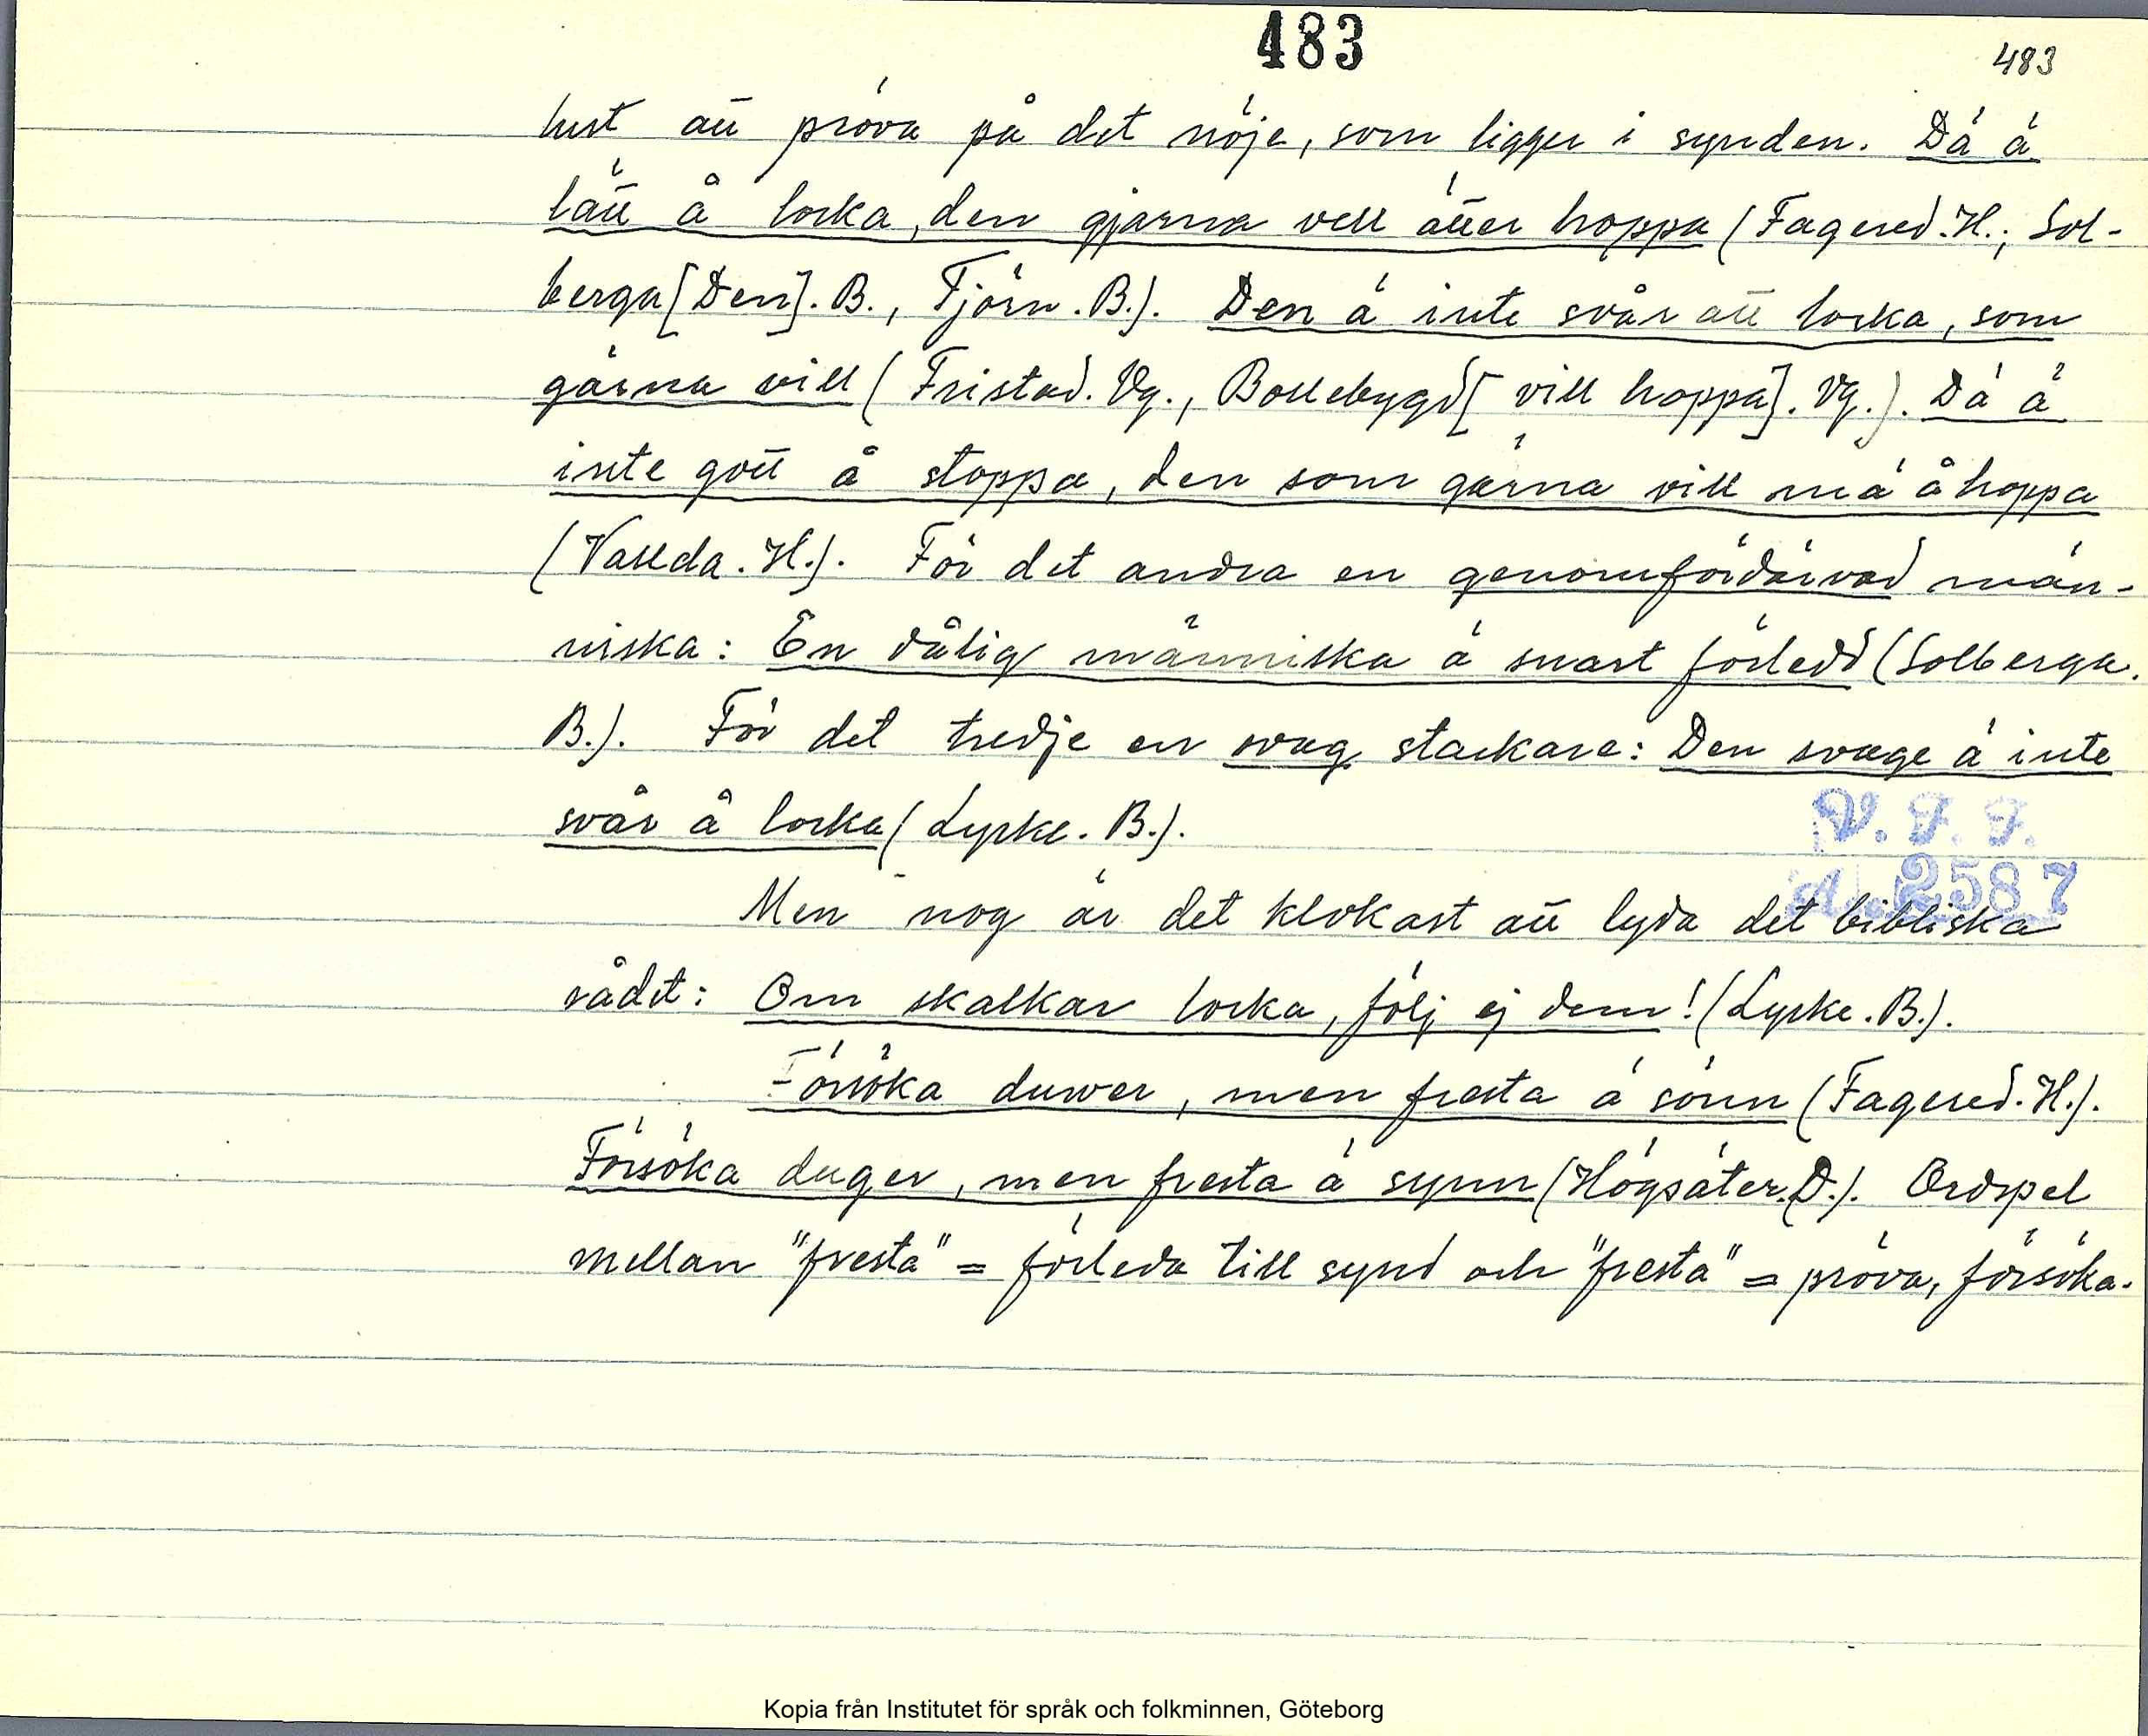 483
483
lust att pröva på det nöje, som ligger i synden. Dä ä
lätt å locka, den gjarna vell ätter hoppa (Fagered. H.; Sol-
berga [Den]. B., Tjörn. B.). Den ä inte svår att locka, som
gärna vill (Fristad. Vg., Bollebygd [vill hoppa]. Vg.). Dä ä
inte gott å stoppa, den som gärna vill mä å hoppa
(Vallda. H.). För det andra en genomfördärvad män-
niska: En dålig människa ä snart förledd (Solberga.
B.). För det tredje en svag stackare: Den svage ä inte
svår å locka (Lyske. B.).
V. F. F.
A. 2587
Men nog är det klokast att lyda det bibliska
rådet: Om skalkar locka, följ ej dem! (Lyske. B.).
Försöka duwer, men fresta ä sönn (Fagered. H.).
Försöka duger, men fresta ä synn (Högsäter. D.). Ordspel
mellan "fresta" = förleda till synd och "fresta" = pröva, försöka.
Kopia från Institutet för språk och folkminnen, Göteborg